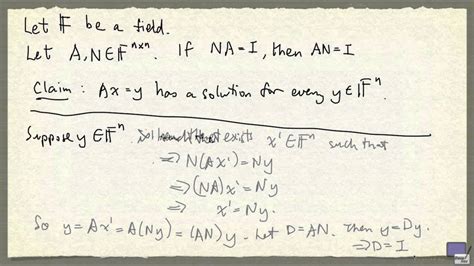 Let 𝔽 be a field.
Let A, N ∈ 𝔽ⁿˣⁿ. If NA = I, then AN = I
Claim : Ax = y has a solution for every y ∈ 𝔽ⁿ.
Suppose y ∈ 𝔽ⁿ exists x' ∈ 𝔽ⁿ such that
⇒ N(Ax') = Ny
⇒ (NA)x' = Ny
⇒ x' = Ny.
So y = Ax' = A(Ny) = (AN)y. Let D = AN. Then y = Dy.
⇒ D = I